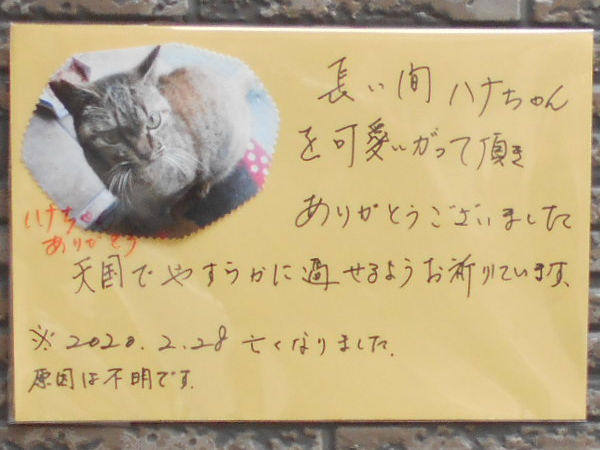 長い間ハナちゃん
を可愛いがって頂き
ありがとうございました
ハナちゃん
ありがとう
天国でやすらかに過せるようお祈りています。
※2020.2.28亡くなりました.
原因は不明です.